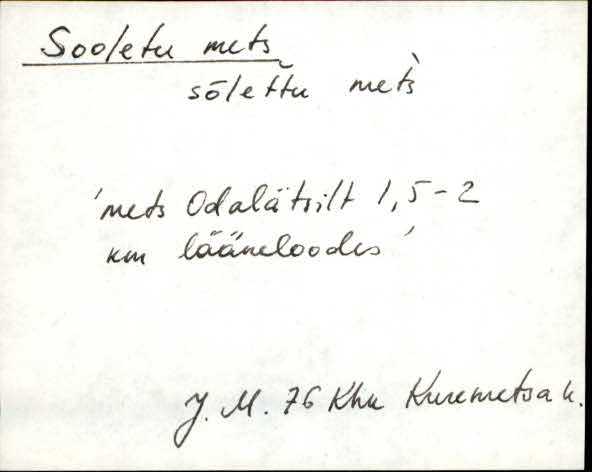 Sooletu mets
sōlettu mets̀
'mets Odalätsilt 1,5-2
km lääneloodes'
J. M. 76 Khk Kuremetsa k.